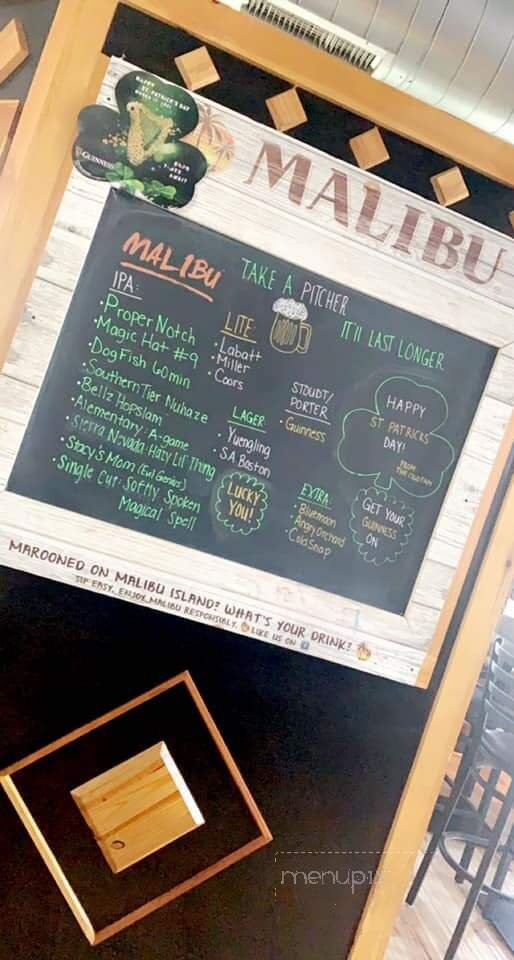 HAPPY
ST. PATRICK'S DAY
GUINNESS
MALIBU
MALIBU
TAKE A PITCHER
IT'll LAST LONGER
IPA:
• Proper Notch
• Magic Hat #9
• DogFish 60min
• Southern Tier Nuhaze
• Bellz Hopslam
• Alementary: A-game
• Sierra Nevada: Hazy Lil Thing
• Stacy's Mom (Evil Genius)
• Single Cut: Softly Spoken
Magical Spell
LITE:
• Labatt
• Miller
• Coors
LAGER
• Yuengling
• S.A Boston
LUCKY
YOU!
STOUDT/
PORTER
• Guinness
EXTRA
• Bluemoon
• Angry Orchard
• Cold Snap
HAPPY
ST PATRICKS
DAY!
FROM
GET YOUR
GUINNESS
ON
MAROONED ON MALIBU ISLAND? WHAT'S YOUR DRINK?
SIP EASY. ENJOY MALIBU RESPONSIBLY. LIKE US ON f
menupix